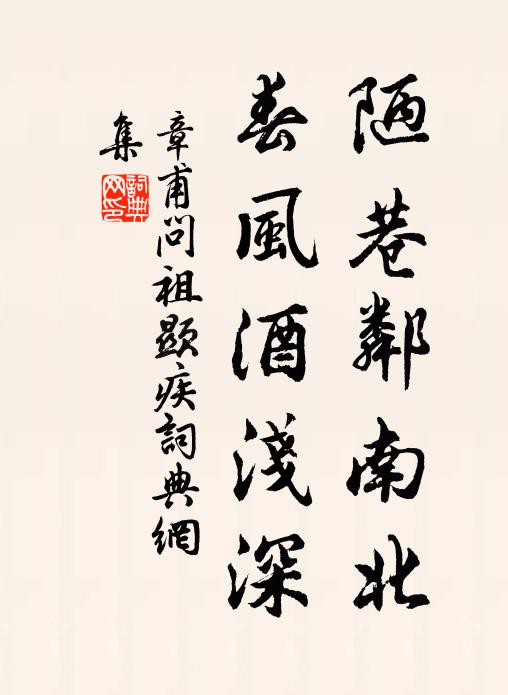 陋巷鄰南北
春風酒淺深
章甫問祖顯疾詞典網
集
詞典
网印